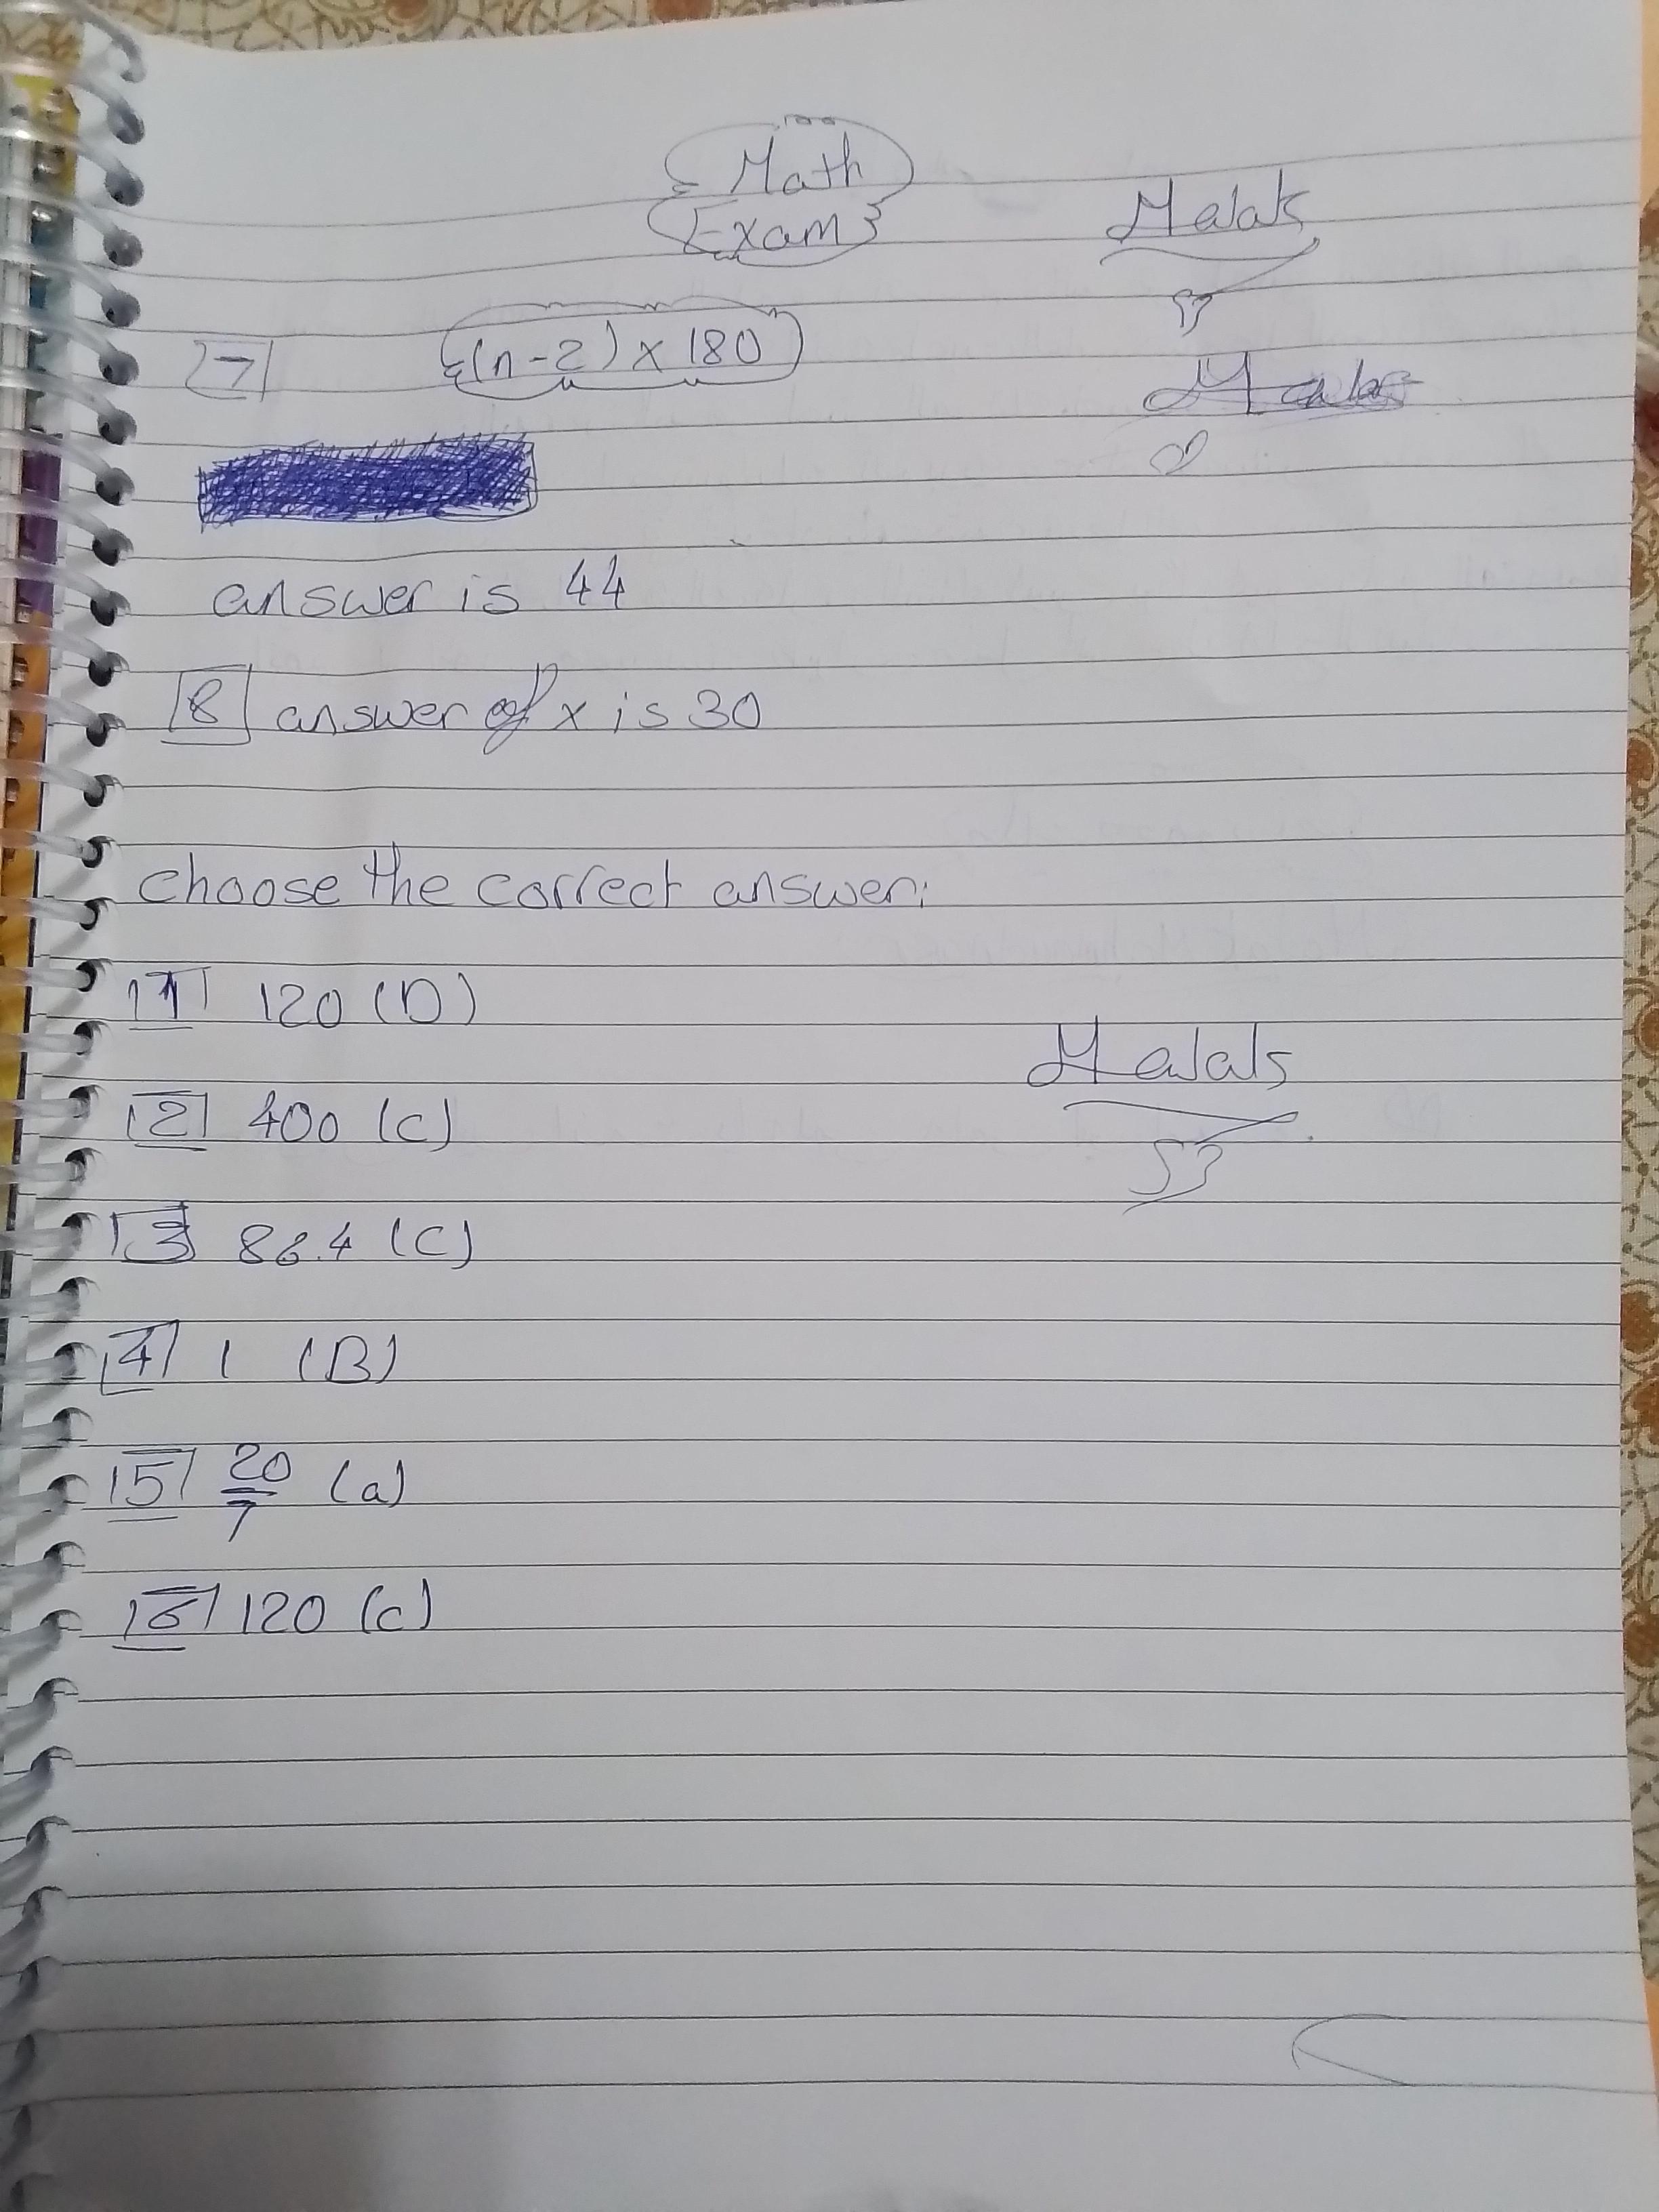 Math
Exam
Malak
7 (n-2) x 180
answer is 44
8 answer of x is 30
choose the correct answer:
1 120 (D)
2 400 (c)
Malak
3 86.4 (C)
4 1 (B)
5 20/7 (a)
6 120 (c)